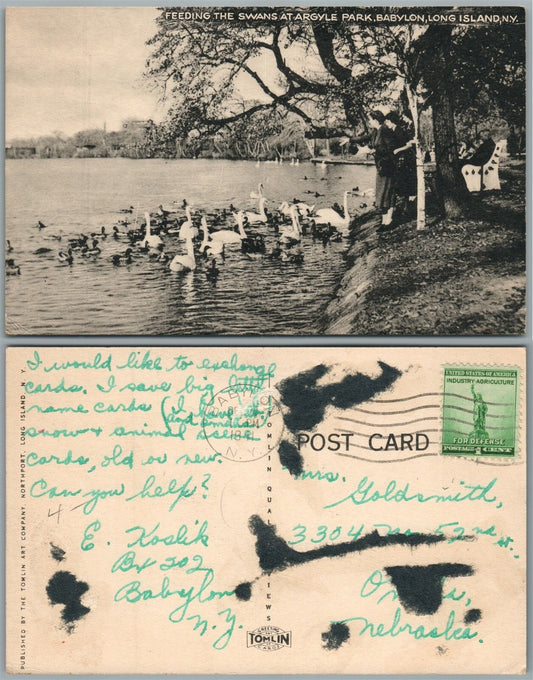 FEEDING THE SWANS AT ARGYLE PARK, BABYLON, LONG ISLAND, N.Y.
I would like to exchange
cards. I save big little
name cards (I have
snow & animal
cards, old or new.
Can you help?
4 -
E. Koslik
Bx 202
Babylon
N.Y.
PUBLISHED BY THE TOMLIN ART COMPANY, NORTHPORT, LONG ISLAND, N. Y.
TOMLIN
VIEWS
GREETING
TOMLIN
CARDS
1941
N.Y.
POST CARD
UNITED STATES OF AMERICA
INDUSTRY-AGRICULTURE
FOR DEFENSE
POSTAGE 1 CENT
Mrs.
Goldsmith,
3304 No. 52nd St.
Nebraska.